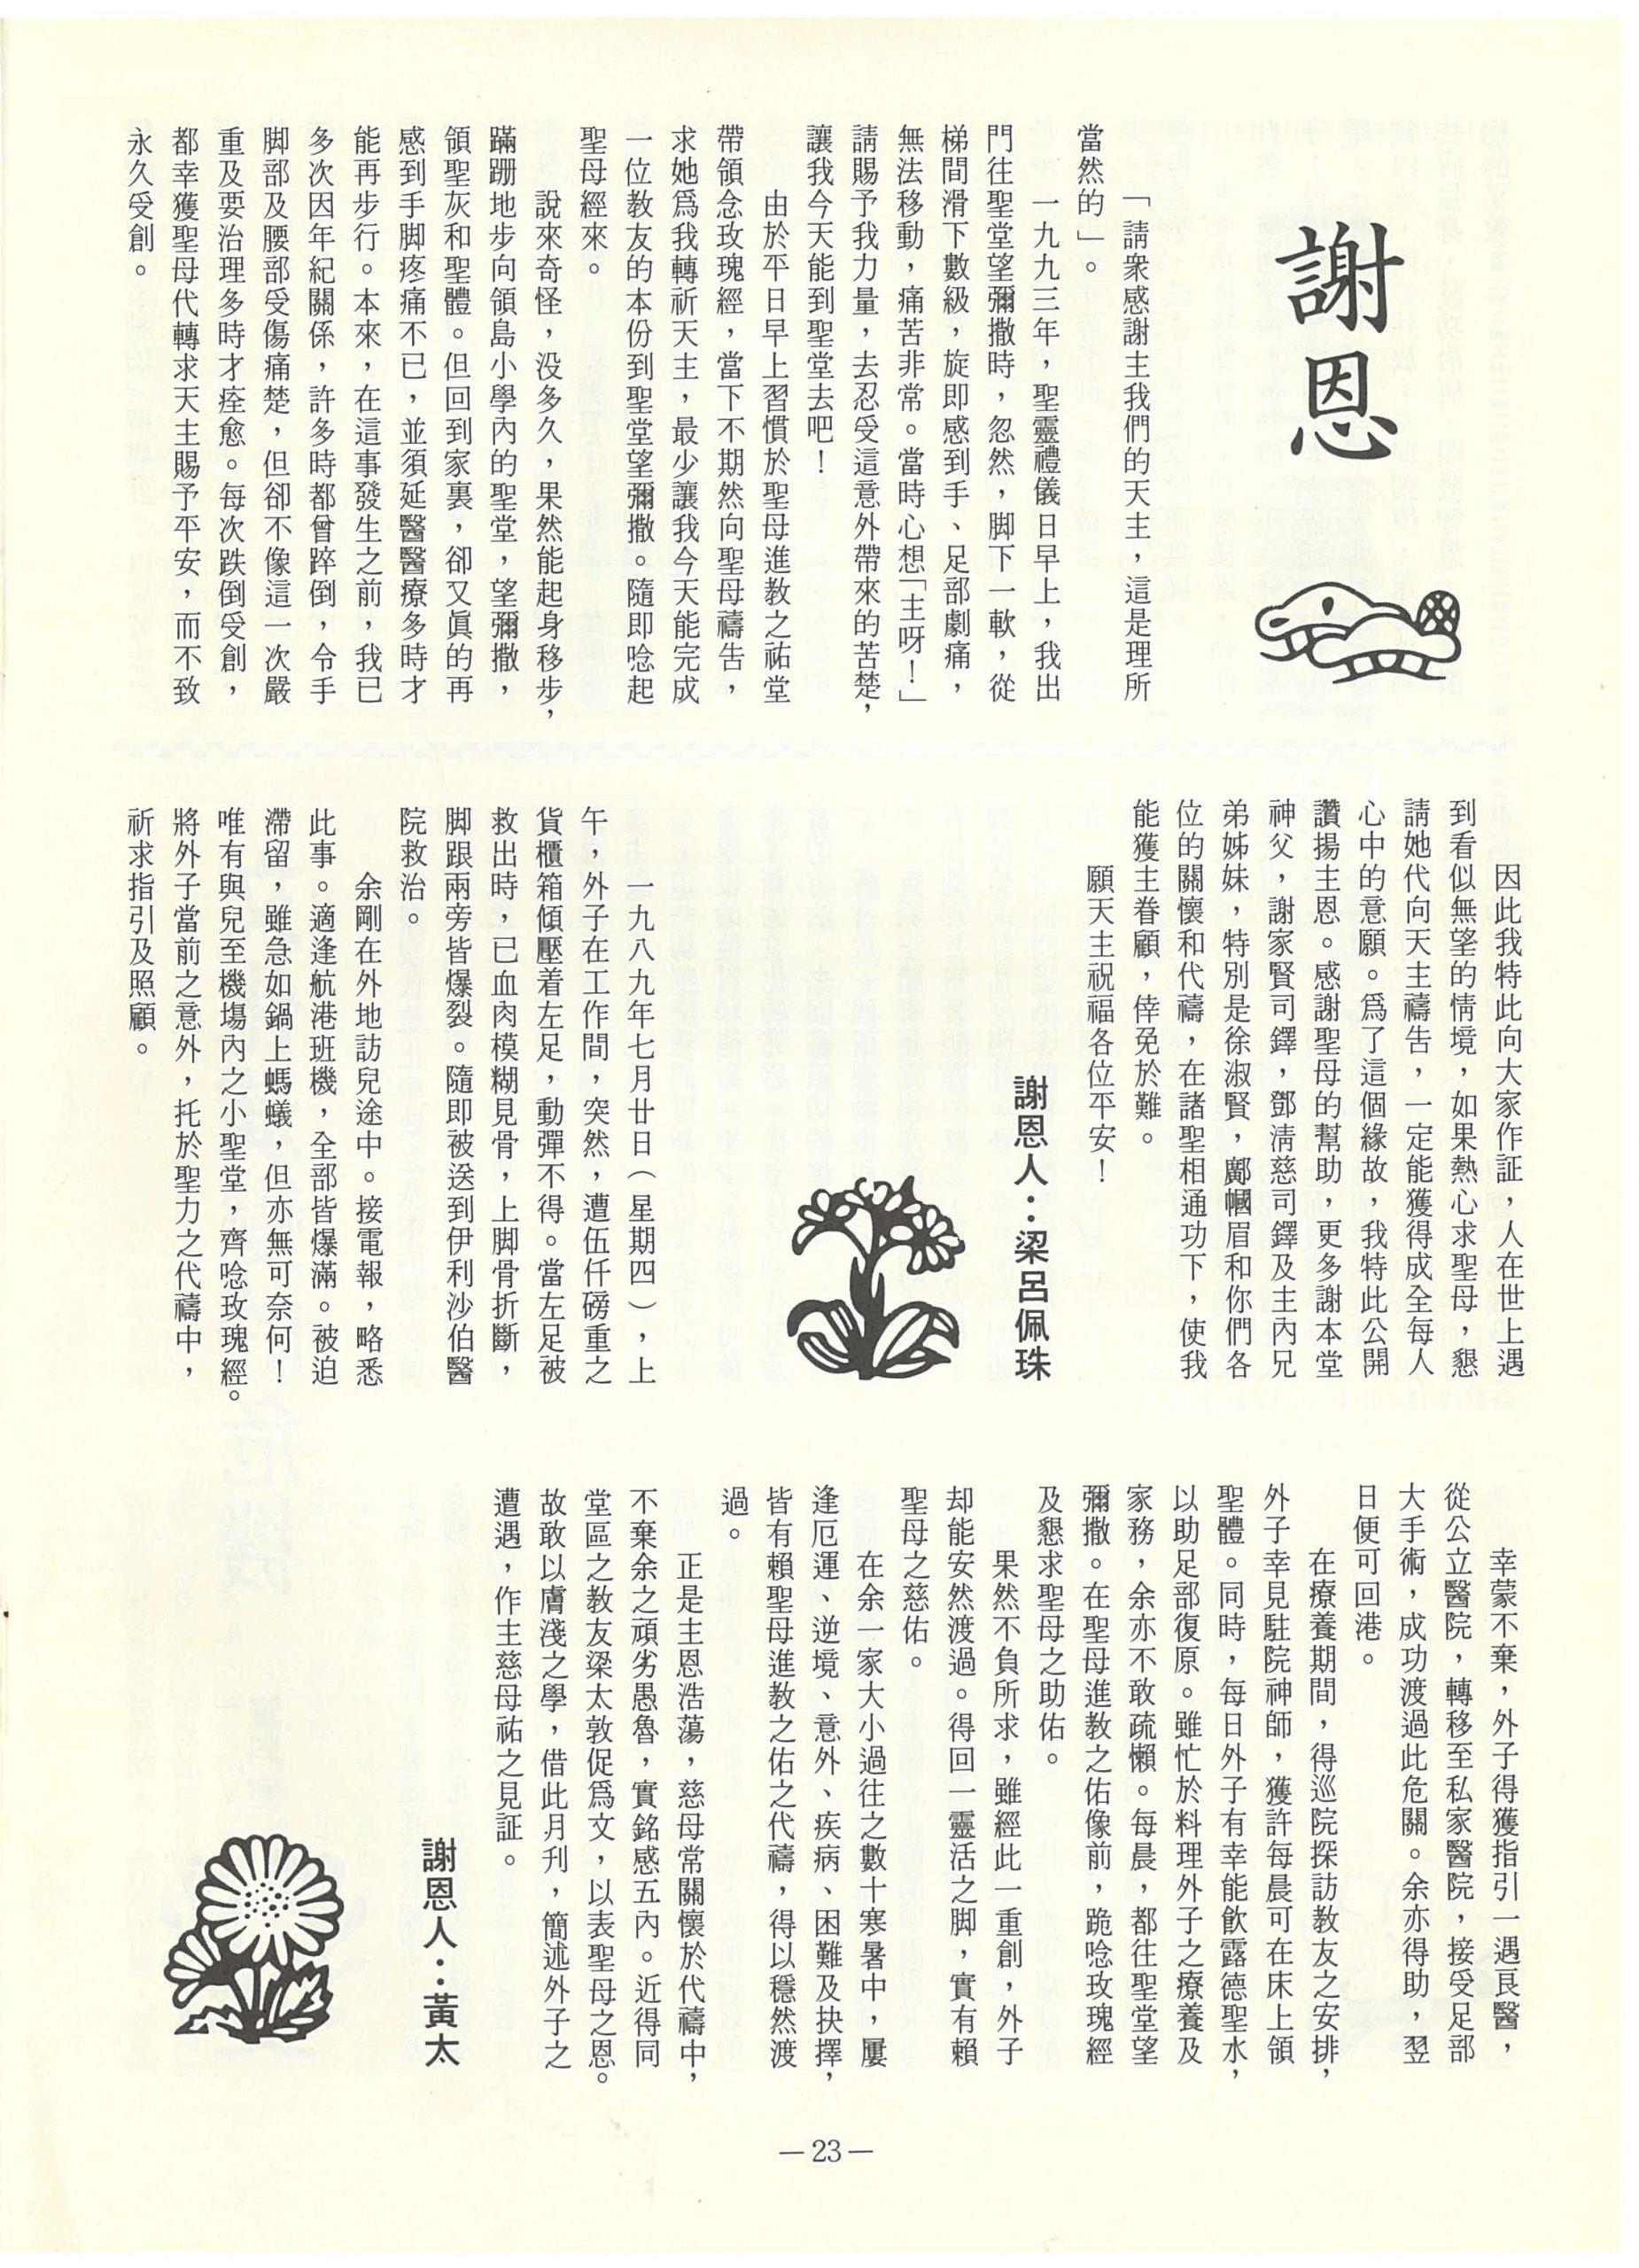 謝恩
「請衆感謝主我們的天主，這是理所
當然的」。
一九九三年，聖靈禮儀日早上，我出
門往聖堂望彌撒時，忽然，脚下一軟，從
梯間滑下數級，旋即感到手、足部劇痛，
無法移動，痛苦非常。當時心想「主呀！」
請賜予我力量，去忍受這意外帶來的苦楚，
讓我今天能到聖堂去吧！
由於平日早上習慣於聖母進教之祐堂
帶領念玫瑰經，當下不期然向聖母禱告，
求她爲我轉祈天主，最少讓我今天能完成
一位教友的本份到聖堂望彌撒。隨即唸起
聖母經來。
說來奇怪，没多久，果然能起身移步，
蹣跚地步向領島小學內的聖堂，望彌撒，
領聖灰和聖體。但回到家裏，卻又眞的再
感到手脚疼痛不已，並須延醫醫療多時才
能再步行。本來，在這事發生之前，我已
多次因年紀關係，許多時都曾踤倒，令手
脚部及腰部受傷痛楚，但卻不像這一次嚴
重及要治理多時才痊愈。每次跌倒受創，
都幸獲聖母代轉求天主賜予平安，而不致
永久受創。
因此我特此向大家作証，人在世上遇
到看似無望的情境，如果熱心求聖母，懇
請她代向天主禱告，一定能獲得成全每人
心中的意願。爲了這個緣故，我特此公開
讚揚主恩。感謝聖母的幫助，更多謝本堂
神父，謝家賢司鐸，鄧淸慈司鐸及主內兄
弟姊妹，特別是徐淑賢，鄺幗眉和你們各
位的關懷和代禱，在諸聖相通功下，使我
能獲主眷顧，倖免於難。
願天主祝福各位平安！
謝恩人：梁呂佩珠
一九八九年七月廿日（星期四），上
午，外子在工作間，突然，遭伍仟磅重之
貨櫃箱傾壓着左足，動彈不得。當左足被
救出時，已血肉模糊見骨，上脚骨折斷，
脚跟兩旁皆爆裂。隨即被送到伊利沙伯醫
院救治。
余剛在外地訪兒途中。接電報，略悉
此事。適逢航港班機，全部皆爆滿。被迫
滯留，雖急如鍋上螞蟻，但亦無可奈何！
唯有與兒至機塲內之小聖堂，齊唸玫瑰經。
將外子當前之意外，托於聖力之代禱中，
祈求指引及照顧。
幸蒙不棄，外子得獲指引一遇良醫，
從公立醫院，轉移至私家醫院，接受足部
大手術，成功渡過此危關。余亦得助，翌
日便可回港。
在療養期間，得巡院探訪教友之安排，
外子幸見駐院神師，獲許每晨可在床上領
聖體。同時，每日外子有幸能飲露德聖水，
以助足部復原。雖忙於料理外子之療養及
家務，余亦不敢疏懶。每晨，都往聖堂望
彌撒。在聖母進教之佑像前，跪唸玫瑰經
及懇求聖母之助佑。
果然不負所求，雖經此一重創，外子
却能安然渡過。得回一靈活之脚，實有賴
聖母之慈佑。
在余一家大小過往之數十寒暑中，屢
逢厄運、逆境、意外、疾病、困難及抉擇，
皆有賴聖母進教之佑之代禱，得以穩然渡
過。
正是主恩浩蕩，慈母常關懷於代禱中，
不棄余之頑劣愚魯，實銘感五內。近得同
堂區之教友梁太敦促爲文，以表聖母之恩。
故敢以膚淺之學，借此月刋，簡述外子之
遭遇，作主慈母祐之見証。
謝恩人：黃太
—23—